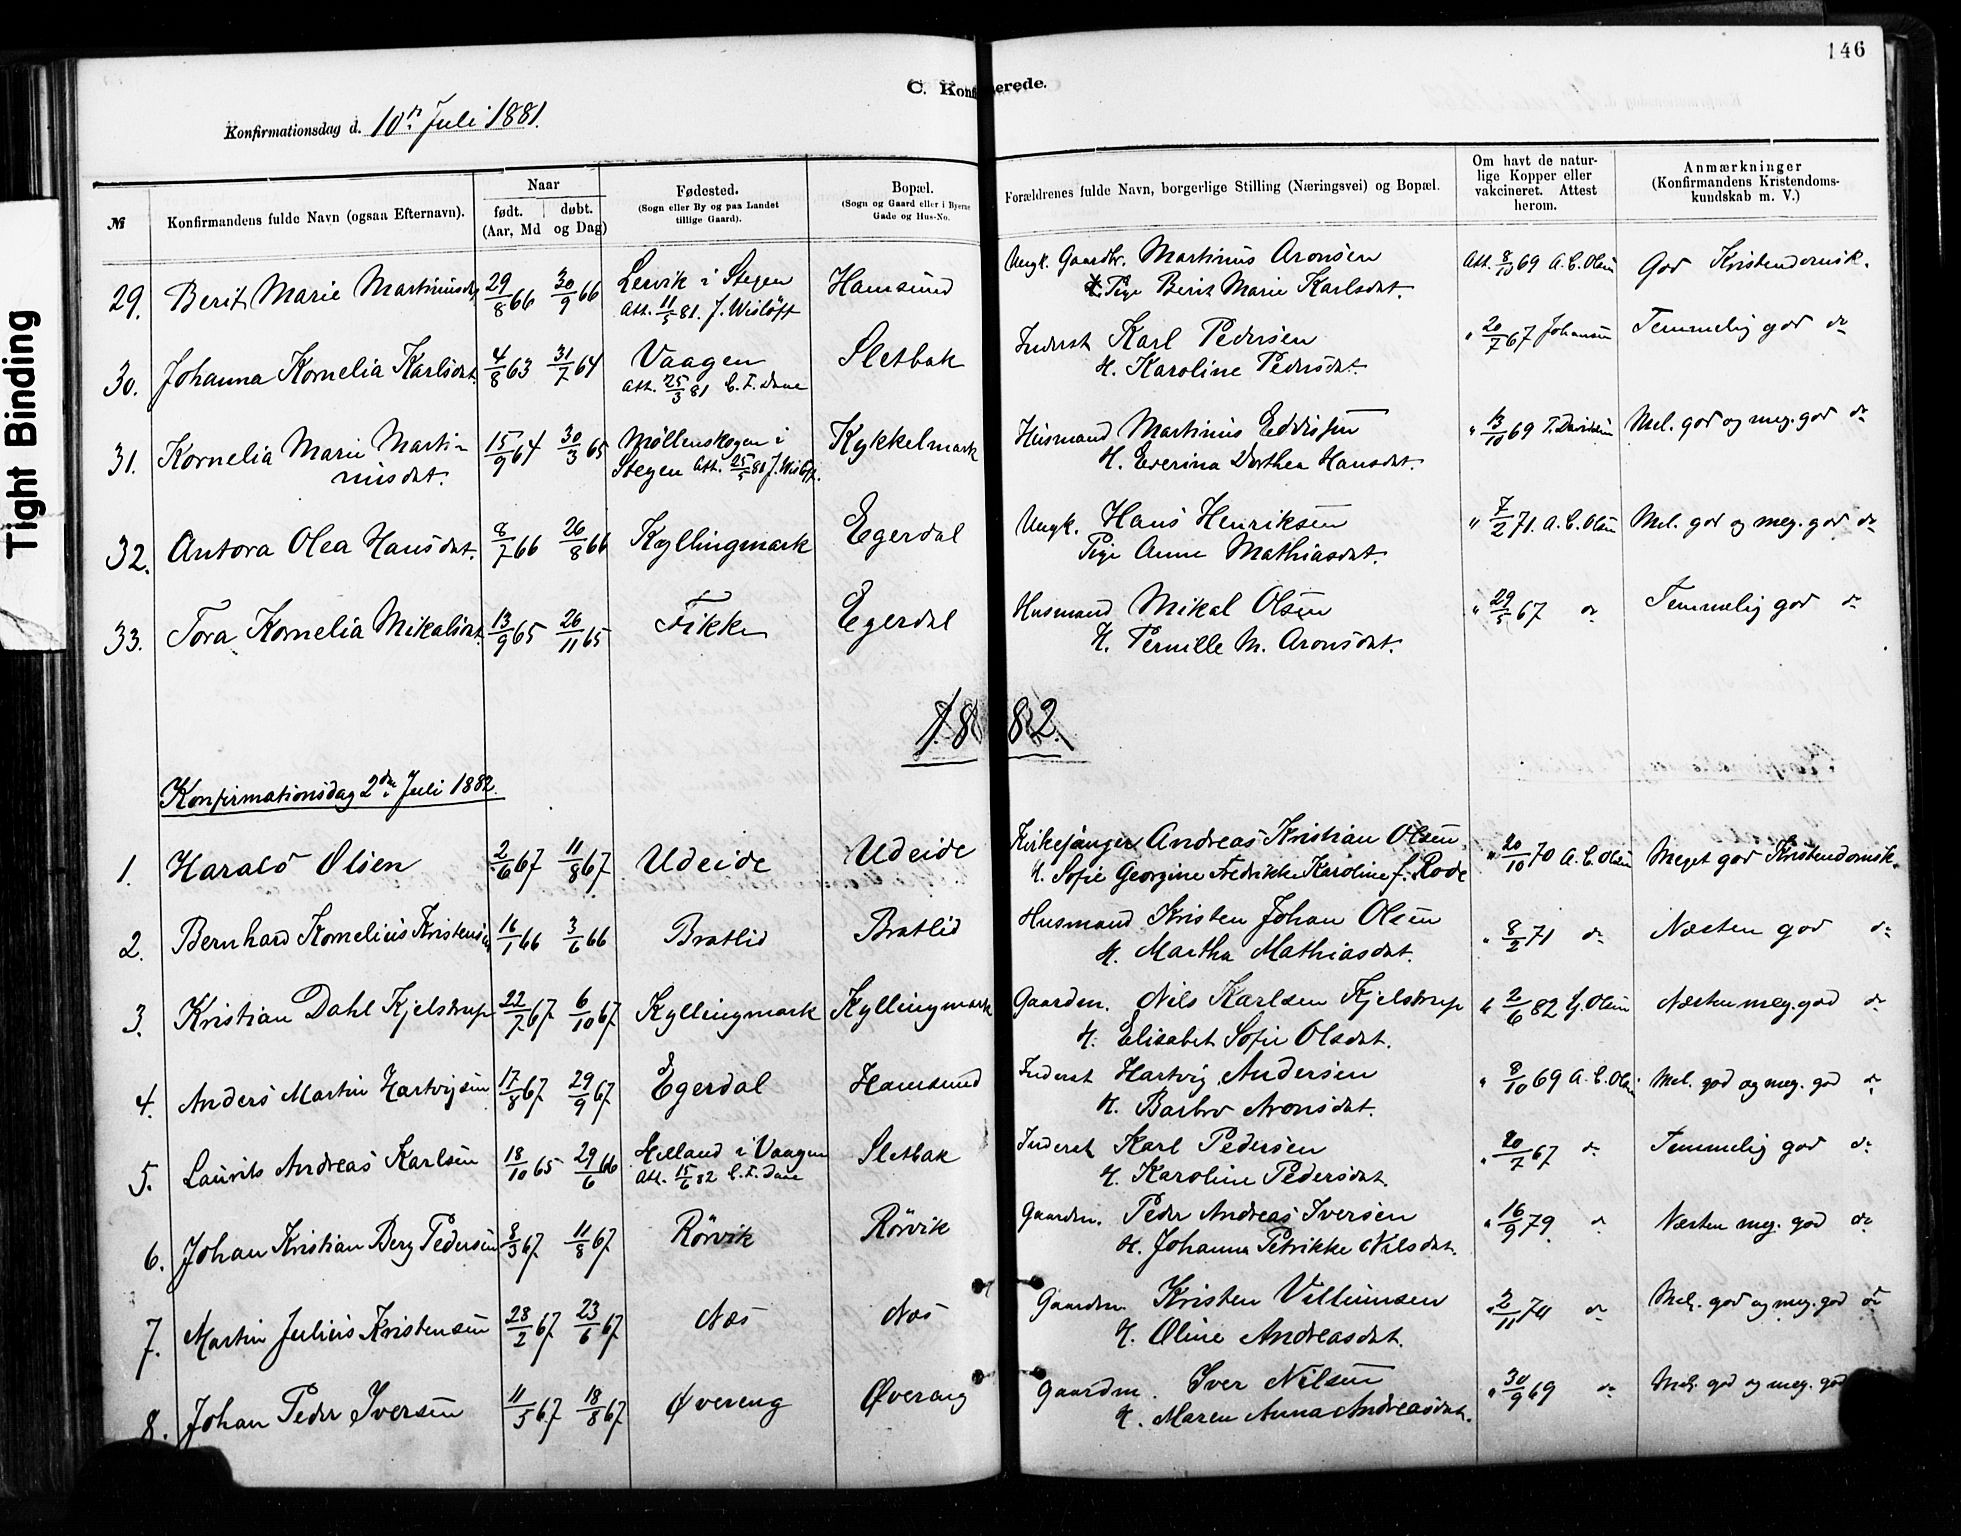 146
C. Konfirmerede.
Konfirmationsdag d. 10de Juli 1881.
№ Konfirmandens fulde Navn (ogsaa Efternavn). Naar født. døbt. (Aar, Md og Dag) Fødested. (Sogn eller By og paa Landet tillige Gaard). Bopæl. (Sogn og Gaard eller i Byerne Gade og Hus-No. Forældrenes fulde Navn, borgerlige Stilling (Næringsvei) og Bopæl. Om havt de naturlige Kopper eller vakcineret. Attest herom. Anmærkninger (Konfirmandens Kristendomskundskab m. V.)
29. Berit Marie Martinusdt. 29/8 66 30/9 66 Lervik i Stegen Hamsund Ungk. Gaardbr. Martinus Aronsen Att. 8/10 69 A. C. Olsen God Kristendomsk.
Att. 11/5 81. J. Wisløff Pige Berit Marie Karlsdat.
30. Johanna Kornelia Karlsdat. 4/8 63 31/7 64 Vaagen Sletbak Inderst Karl Pedersen " 20/7 67 Johansen Temmelig god do
Att. 25/3 81 C. F. Dane H. Karoline Pedersdat.
31. Kornelia Marie Marti- 15/9 64 30/3 65 Møllenskogen i Kykkelmark Husmand Martinus Eddissen " 13/10 69 T. Davidsen Mel. god og meg. god do
nusdat. Stegen Att. 25/5 81 J. Wisløff. H. Everina Dorthea Hansdat.
32. Antora Olea Hansdat. 8/7 66 26/8 66 Kyllingmark Egerdal Ungk. Hans Henriksen " 7/2 71. A. C. Olsen Mel. god og meg. god do
Pige Anne Mathiasdat.
33. Tora Kornelia Mikalsdat. 13/9 65 26/11 65 Fikke Egerdal Husmand Mikal Olsen " 29/5 67 do Temmelig god do
H. Pernille M. Aronsdat.
1882.
Konfirmationsdag 2den Juli 1882.
1. Harald Olsen 2/6 67 11/8 67 Udeide Udeide Kirkesanger Andreas Kristian Olsen, " 20/10 70 A. C. Olsen Meget god Kristendomsk.
H. Sofie Georgine Fredrikke Karoline f. Rode
2. Bernhard Kornelius Kristensen 16/1 66 3/6 66 Bratlid Bratlid Husmand Kristen Johan Olsen " 8/2 71 do Næsten god do
H. Martha Mathiasdat.
3. Kristian Dahl Kjelstrup 22/7 67 6/10 67 Kyllingmark Kyllingmark Gaardm. Nils Karlsen Kjelstrup " 2/6 82 Olsen Næsten meg. god do
H. Elisabet Sofie Olsdat.
4. Anders Martin Hartvigsen 17/8 67 29/9 67 Egerdal Hamsund Inderst Hartvig Andersen " 8/10 69 A. C. Olsen Mel. god og meg. god do
H. Barbro Aronsdat.
5. Laurits Andreas Karlsen 18/10 65 29/6 66 Helland i Vaagen Sletbak Inderst Karl Pedersen " 20/7 67 do Temmelig god do
Att. 15/6 82 C. F. Dane H. Karoline Pedersdat.
6. Johan Kristian Berg Pedersen 8/3 67 11/8 67 Rørvik Rørvik Gaardm. Peder Andreas Iversen " 16/9 79 do Næsten meg. god do
H. Johanna Petrikke Nilsdat.
7. Martin Julius Kristensen 28/2 67 23/6 67 Næs Næs Gaardm. Kristen Villumsen " 2/11 74 do Mel. god og meg. god do
H. Oline Andreasdat.
8. Johan Peder Iversen 11/5 67 18/8 67 Øvereng Øvereng Gaardm. Iver Nilsen " 30/9 69 do Mel. god og meg. god
H. Maren Anna Andreasdat.
Tight Binding